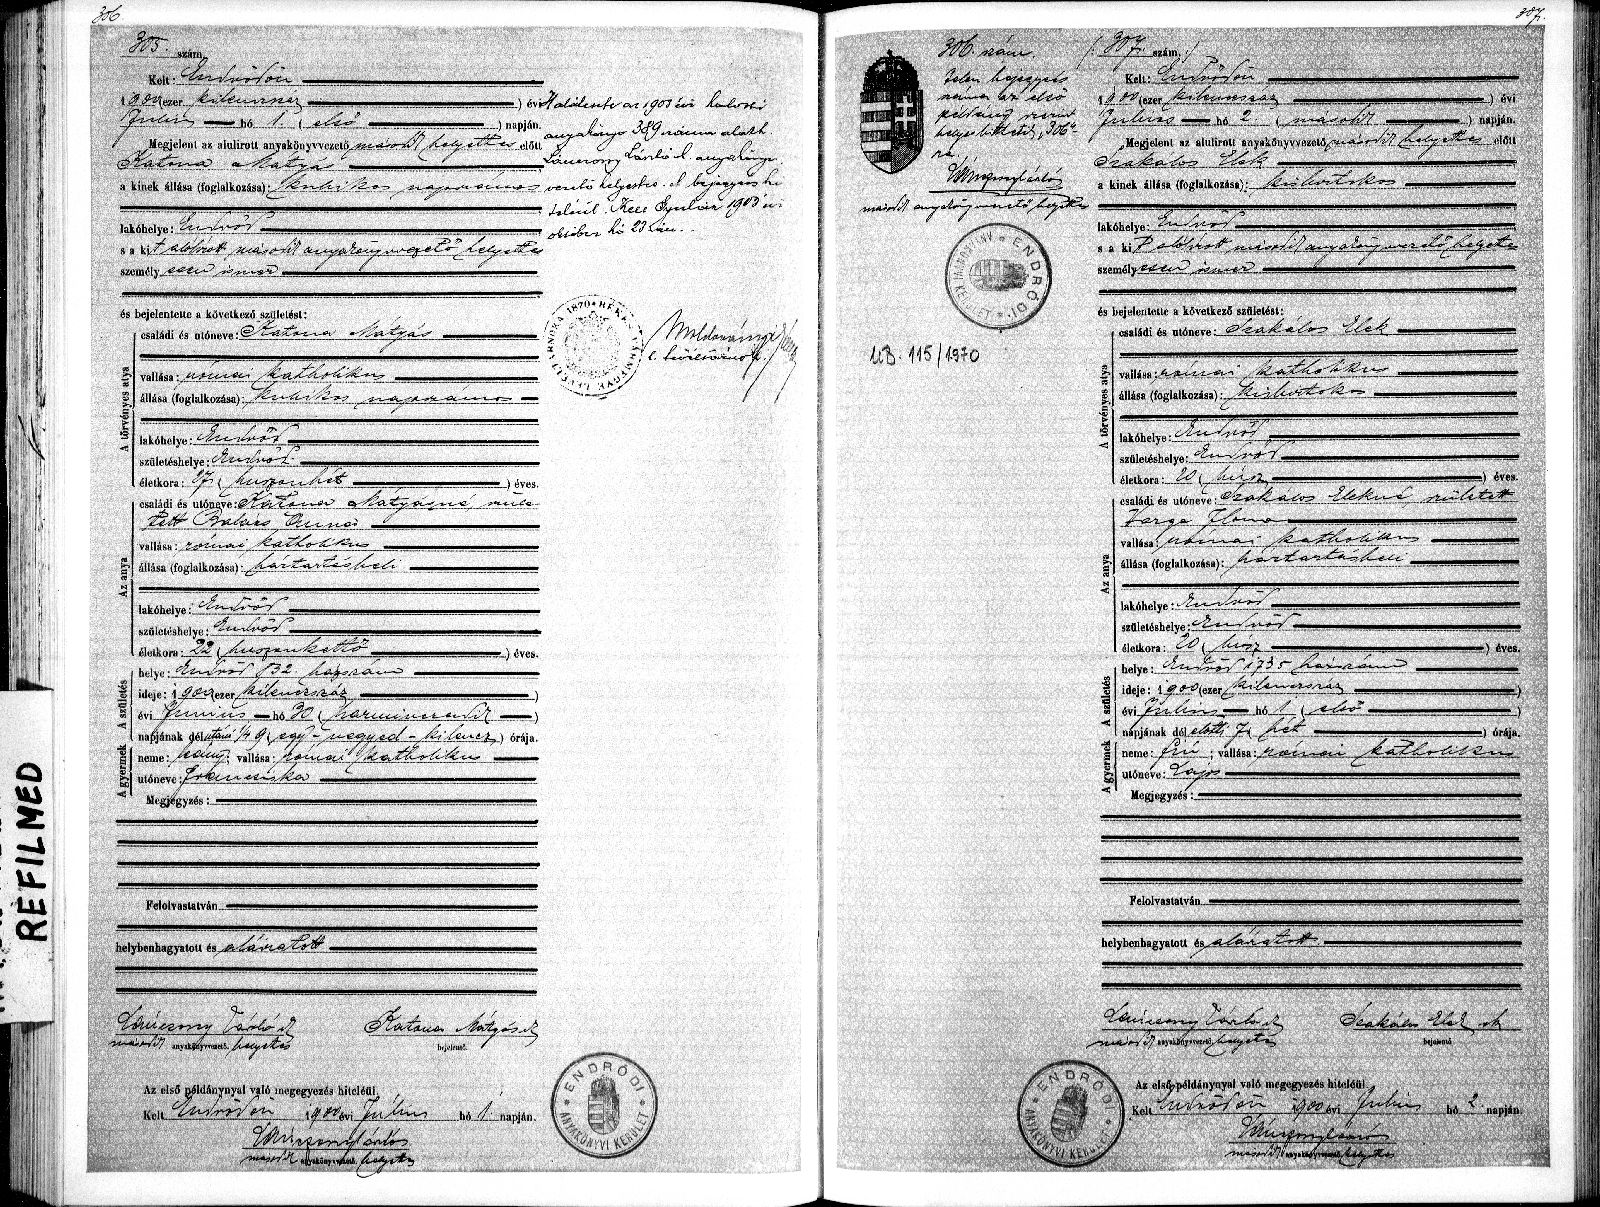 306
305. szám.
Kelt: Endrődön
1900 (ezer kilenczszáz ) évi
Julius hó 1 ( első ) napján.
Megjelent az alulirott anyakönyvvezető második helyettes előtt
Katona Mátyás
a kinek állása (foglalkozása): kubikos napszámos
lakóhelye: Endrőd
s a kit alulirott második anyakönyvvezető helyettes
személyesen ismer
és bejelentette a következő születést:
A törvényes atya
családi és utóneve: Katona Mátyás
vallása: római katholikus
állása (foglalkozása): kubikos napszámos
lakóhelye: Endrőd
születéshelye: Endrőd
életkora: 27 ( huszonhét ) éves.
Az anya
családi és utóneve: Katona Mátyásné, szüle-
tett Balázs Anna
vallása: római katholikus
állása (foglalkozása): háztartásbeli
lakóhelye: Endrőd
születéshelye: Endrőd
életkora: 22 ( huszonkettő ) éves.
A születés
helye: Endrőd 832 házszám
ideje: 1900 (ezer kilenczszáz )
évi Junius hó 30 ( harminczadik )
napjának délutáni 1/4 9 ( egy-negyed-kilencz ) órája.
A gyermek
neme: leány; vallása: római katholikus
utóneve: Francziska
Megjegyzés:
Felolvastatván
helybenhagyatott és aláiratott
Katona Mátyás
másodk anyakönyvvezető. helyettes bejelentő.
Az első példánynyal való megegyezés hiteléül
Kelt Endrődön 1900 évi Julius hó 1. napján.
másodk anyakönyvvezető. helyettes
ENDRŐDI ANYAKÖNYVI KERÜLET
Halálesete az 1903 évi halotti
anyakönyv 389 száma alatt
László anyakönyv-
vezető helyettes. A bejegyzés hi-
teléül. Kelt Gyulán 1903 évi
október hó 23-án.
1870 BÉKÉS VÁRMEGYE
l. levéltárnok
REFILMED
307.
306. szám.
Jelen bejegyzés
száma az első
példány szerint
helyesbittetett "306"-
ra.
másodk anyakönyvvezető helyettes
ENDRŐDI ANYAKÖNYVI KERÜLET
UB. 115/1970
(: 307. szám. :)
Kelt: Endrődön
1900 (ezer kilenczszáz ) évi
Julius hó 2 ( második ) napján.
Megjelent az alulirott anyakönyvvezető másodk helyettes előtt
Szakálos Elek
a kinek állása (foglalkozása): kisbirtokos
lakóhelye: Endrőd
s a kit alulirott másodk anyakönyvvezető helyettes
személyesen ismer
és bejelentette a következő születést:
A törvényes atya
családi és utóneve: Szakálos Elek
vallása: római katholikus
állása (foglalkozása): kisbirtokos
lakóhelye: Endrőd
születéshelye: Endrőd
életkora: 20 ( húsz ) éves.
Az anya
családi és utóneve: Szakálos Elekné, született
Varga Ilona
vallása: római katholikus
állása (foglalkozása): háztartásbeli
lakóhelye: Endrőd
születéshelye: Endrőd
életkora: 20 ( húsz ) éves.
A születés
helye: Endrőd 1735 házszám
ideje: 1900 (ezer kilenczszáz )
évi Julius hó 1 ( első )
napjának délelőtti 7 ( hét ) órája.
A gyermek
neme: fiú; vallása: római katholikus
utóneve: Lajos
Megjegyzés:
Felolvastatván
helybenhagyatott és aláiratott.
Szakálos Elek
másodk anyakönyvvezető. helyettes bejelentő
Az első példánynyal való megegyezés hiteléül
Kelt Endrődön 1900 évi Julius hó 2. napján.
másodk anyakönyvvezető. helyettes
ENDRŐDI ANYAKÖNYVI KERÜLET